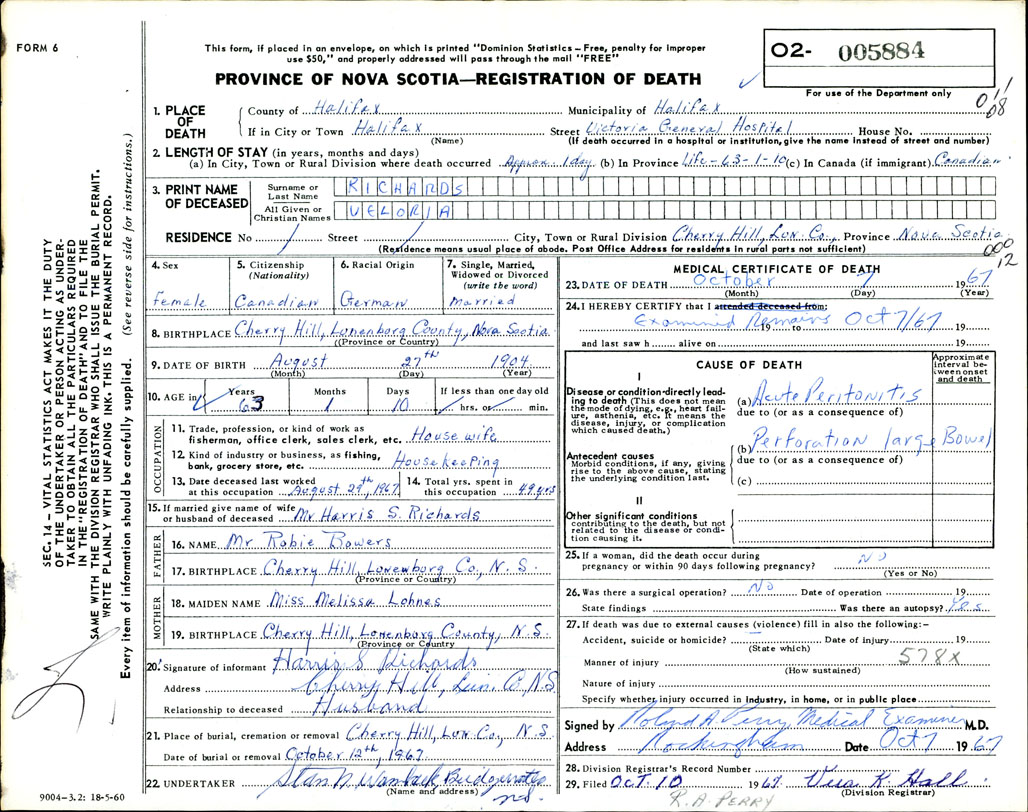 FORM 6
This form, if placed in an envelope, on which is printed "Dominion Statistics – Free, penalty for improper
use $50," and properly addressed will pass through the mail "FREE"
PROVINCE OF NOVA SCOTIA—REGISTRATION OF DEATH
O2- 005884
For use of the Department only
SEC. 14 – VITAL STATISTICS ACT MAKES IT THE DUTY
OF THE UNDERTAKER OR PERSON ACTING AS UNDER-
TAKER TO OBTAIN ALL THE PARTICULARS REQUIRED
IN THE "REGISTRATION OF DEATH" AND TO FILE THE
SAME WITH THE DIVISION REGISTRAR WHO SHALL ISSUE THE BURIAL PERMIT.
WRITE PLAINLY WITH UNFADING INK. THIS IS A PERMANENT RECORD.
Every item of information should be carefully supplied. (See reverse side for instructions.)
1. PLACE OF DEATH County of Halifax Municipality of Halifax
If in City or Town Halifax Street Victoria General Hospital House No.
(Name) (If death occurred in a hospital or institution, give the name instead of street and number)
2. LENGTH OF STAY (in years, months and days)
(a) In City, Town or Rural Division where death occurred Approx 1 day (b) In Province Life-63-1-10 (c) In Canada (if immigrant) Canadian
3. PRINT NAME OF DECEASED Surname or Last Name RICHARDS
All Given or Christian Names VELORIA
RESIDENCE No / Street / City, Town or Rural Division Cherry Hill, Lun. Co., Province Nova Scotia
(Residence means usual place of abode. Post Office Address for residents in rural parts not sufficient)
000
12
4. Sex Female
5. Citizenship (Nationality) Canadian
6. Racial Origin German
7. Single, Married, Widowed or Divorced (write the word) Married
8. BIRTHPLACE Cherry Hill, Lunenburg County, Nova Scotia
(Province or Country)
9. DATE OF BIRTH August 27th 1904
(Month) (Day) (Year)
10. AGE in Years 63 Months 1 Days 10 If less than one day old hrs. or min.
OCCUPATION
11. Trade, profession, or kind of work as
fisherman, office clerk, sales clerk, etc. Housewife
12. Kind of industry or business, as fishing,
bank, grocery store, etc. Housekeeping
13. Date deceased last worked at this occupation August 29th, 1967 14. Total yrs. spent in this occupation 49 yrs
15. If married give name of wife or husband of deceased Mr Harris S. Richards
FATHER
16. NAME Mr Robie Bowers
17. BIRTHPLACE Cherry Hill, Lunenburg Co., N.S.
(Province or Country)
MOTHER
18. MAIDEN NAME Miss Melissa Lohnes
19. BIRTHPLACE Cherry Hill, Lonenborg County, N.S.
(Province or Country)
20. Signature of informant Harris S Richards
Address Cherry Hill, Lun. Co, N.S
Relationship to deceased Husband
21. Place of burial, cremation or removal Cherry Hill, Lun Co., N.S.
Date of burial or removal October 12th, 1967
22. UNDERTAKER Bridgewater
(Name and address) ns.
9004-3.2: 18-5-60
MEDICAL CERTIFICATE OF DEATH
23. DATE OF DEATH October 7 1967
(Month) (Day) (Year)
24. I HEREBY CERTIFY that I attended deceased from:
Examined Remains 19 to Oct 7/67 19
and last saw h alive on 19
CAUSE OF DEATH
Approximate interval between onset and death
I
Disease or condition directly lead-
ing to death (This does not mean
the mode of dying, e.g., heart fail-
ure, asthenia, etc. It means the
disease, injury, or complication
which caused death.)
(a) Acute Peritonitis
due to (or as a consequence of)
(b) Perforation large Bowel
due to (or as a consequence of)
(c)
Antecedent causes
Morbid conditions, if any, giving
rise to the above cause, stating
the underlying condition last.
II
Other significant conditions
contributing to the death, but not
related to the disease or condi-
tion causing it.
25. If a woman, did the death occur during
pregnancy or within 90 days following pregnancy? NO
(Yes or No)
26. Was there a surgical operation? No Date of operation 19
State findings Was there an autopsy? Yes
27. If death was due to external causes (violence) fill in also the following:–
Accident, suicide or homicide? Date of injury 19
(State which)
Manner of injury 578X
(How sustained)
Nature of injury
Specify whether injury occurred in industry, in home, or in public place
Signed by Roland A. Perry Medical Examiner M.D.
Address Rockingham Date Oct 7 1967
28. Division Registrar's Record Number
29. Filed OCT. 10 1967. Vera K. Hall
(Division Registrar)
R. A. PERRY